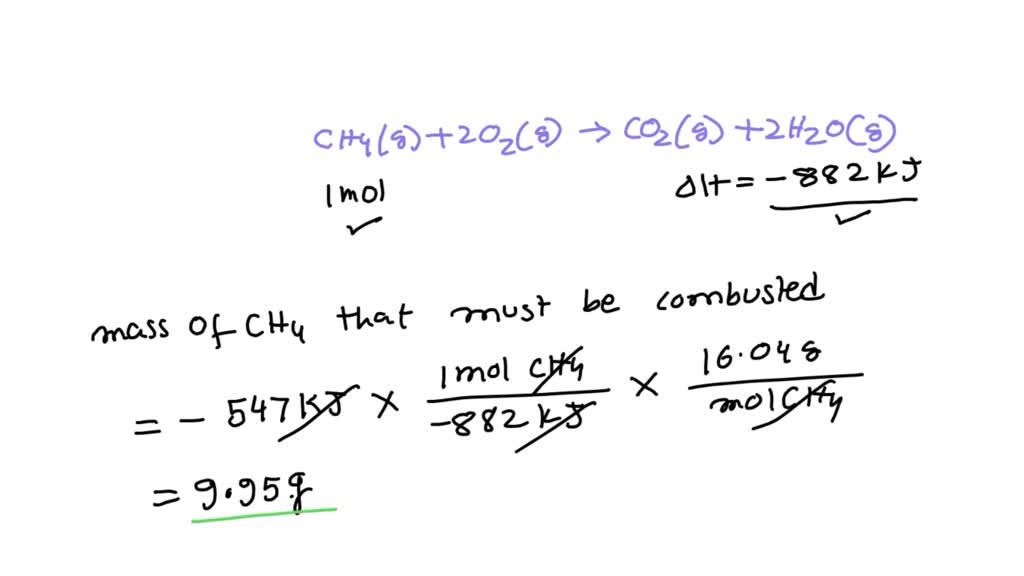 CH4(g)+2O2(g) → CO2(g)+2H2O(g)
1mol ΔH = -882KJ
mass of CH4 that must be combusted
= - 547KJ × 1mol CH4 / -882KJ × 16.04g / molCH4
= 9.95g